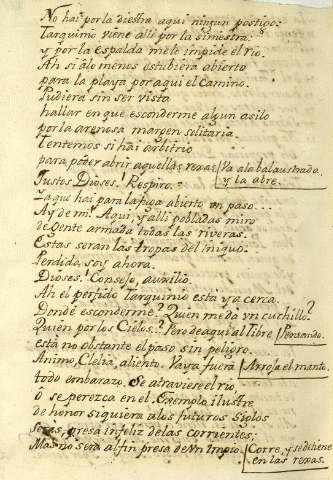 No hai por la diestra aqui ningun postigo:
Tarquinio viene allì por la siniestra:
y por la espalda me le impide el rio.
Ah si àlo menos estubiera abierto
para la playa por aqui el camino.
Pudiera sin ser vista
hallar en que esconderme algun asilo
por la arenosa margen solitaria.
Tentemos si hai arbitrio
para poder abrir aquellas rexas: Va ala balaustrada
y la abre.
Justos Dioses! Respiro.
Ya que hai para la fuga abierto un paso...
Ay de mi! Aqui, y alli pobladas miro
de gente armada todas las riveras.
Estas seran las tropas del iniquo.
Perdida soy ahora.
Dioses! Consejo, auxilio.
Ah el perfido Tarquinio està ya cerca.
Donde esconderme? Quien me dà vn cuchillo?
Quien por los Cielos? Pero de aqui al Tibre Pensando.
està no obstante el paso sin peligro.
Animo, Clelia, aliento. Vaya fuera Arroja el manto.
todo embarazo. Se atraviese el rio,
O se perezca en el. Exemplo ilustre
de honor siquiera a los futuros siglos
seràs, presa infeliz de las corrientes,
Mas no serà al fin presa de vn impio. Corre, y se detiene
en las rexas.